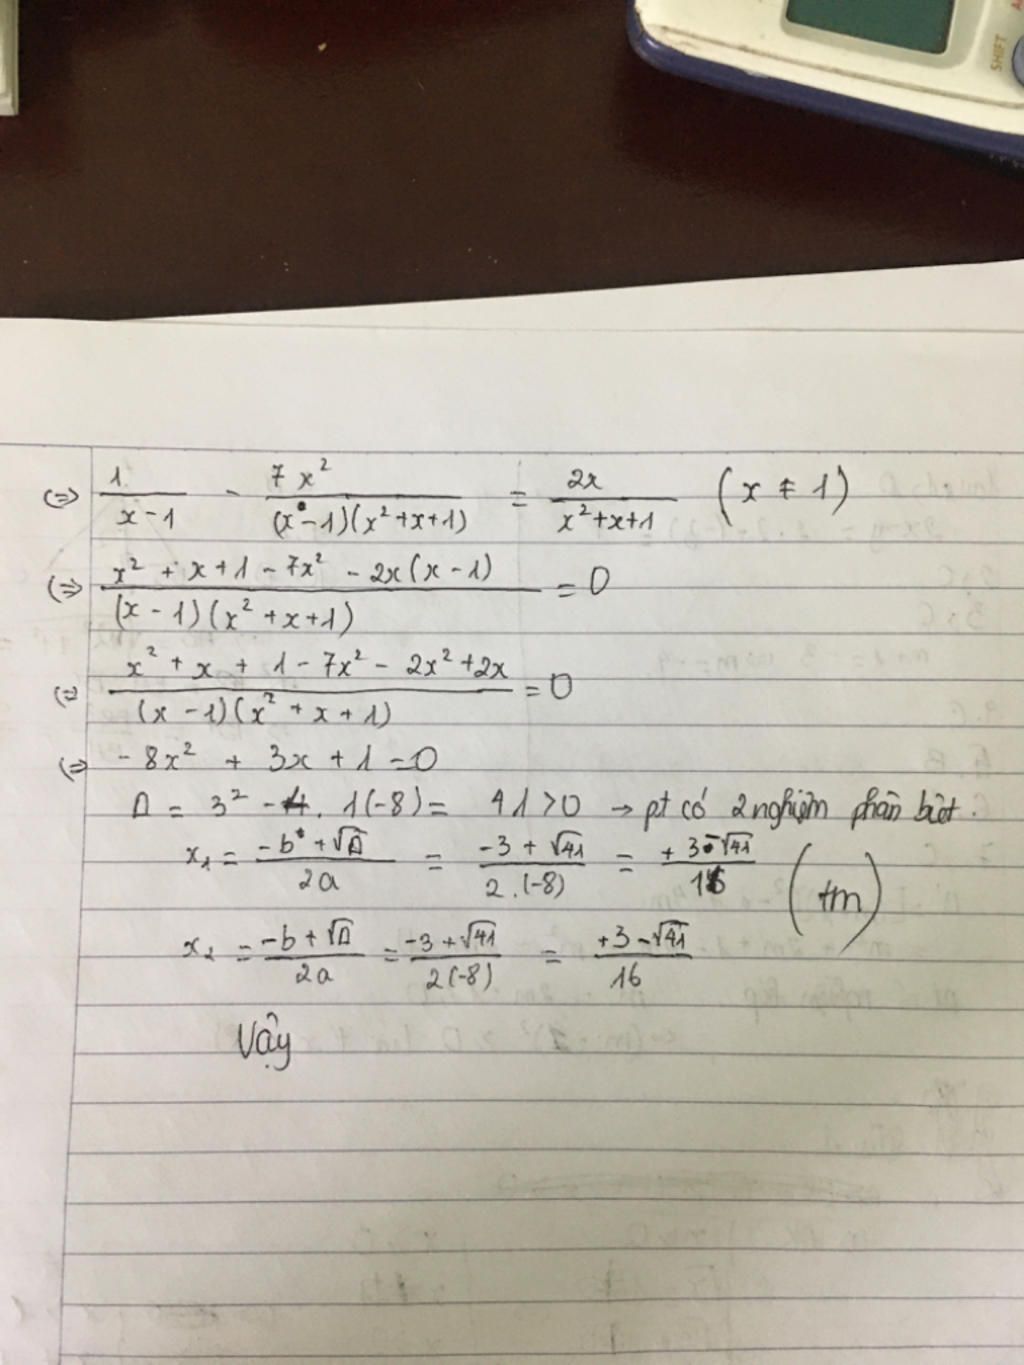 SHIFT
(=) 1/(x-1) - 7x²/((x-1)(x²+x+1)) = 2x/(x²+x+1) (x ≠ 1)
(=) (x² + x+1 - 7x² - 2x(x-1))/((x-1)(x²+x+1)) = 0
(=) (x² + x + 1 - 7x² - 2x²+2x)/((x-1)(x²+x+1)) = 0
(=) -8x² + 3x + 1 = 0
Δ = 3² - 4. 1(-8) = 41 > 0 → pt có 2 nghiệm phân biệt.
x₁ = (-b + √Δ)/2a = (-3 + √41)/(2.(-8)) = (+3-√41)/16 (tm)
x₂ = (-b + √Δ)/2a = (-3 + √41)/(2(-8)) = (+3-√41)/16
Vậy